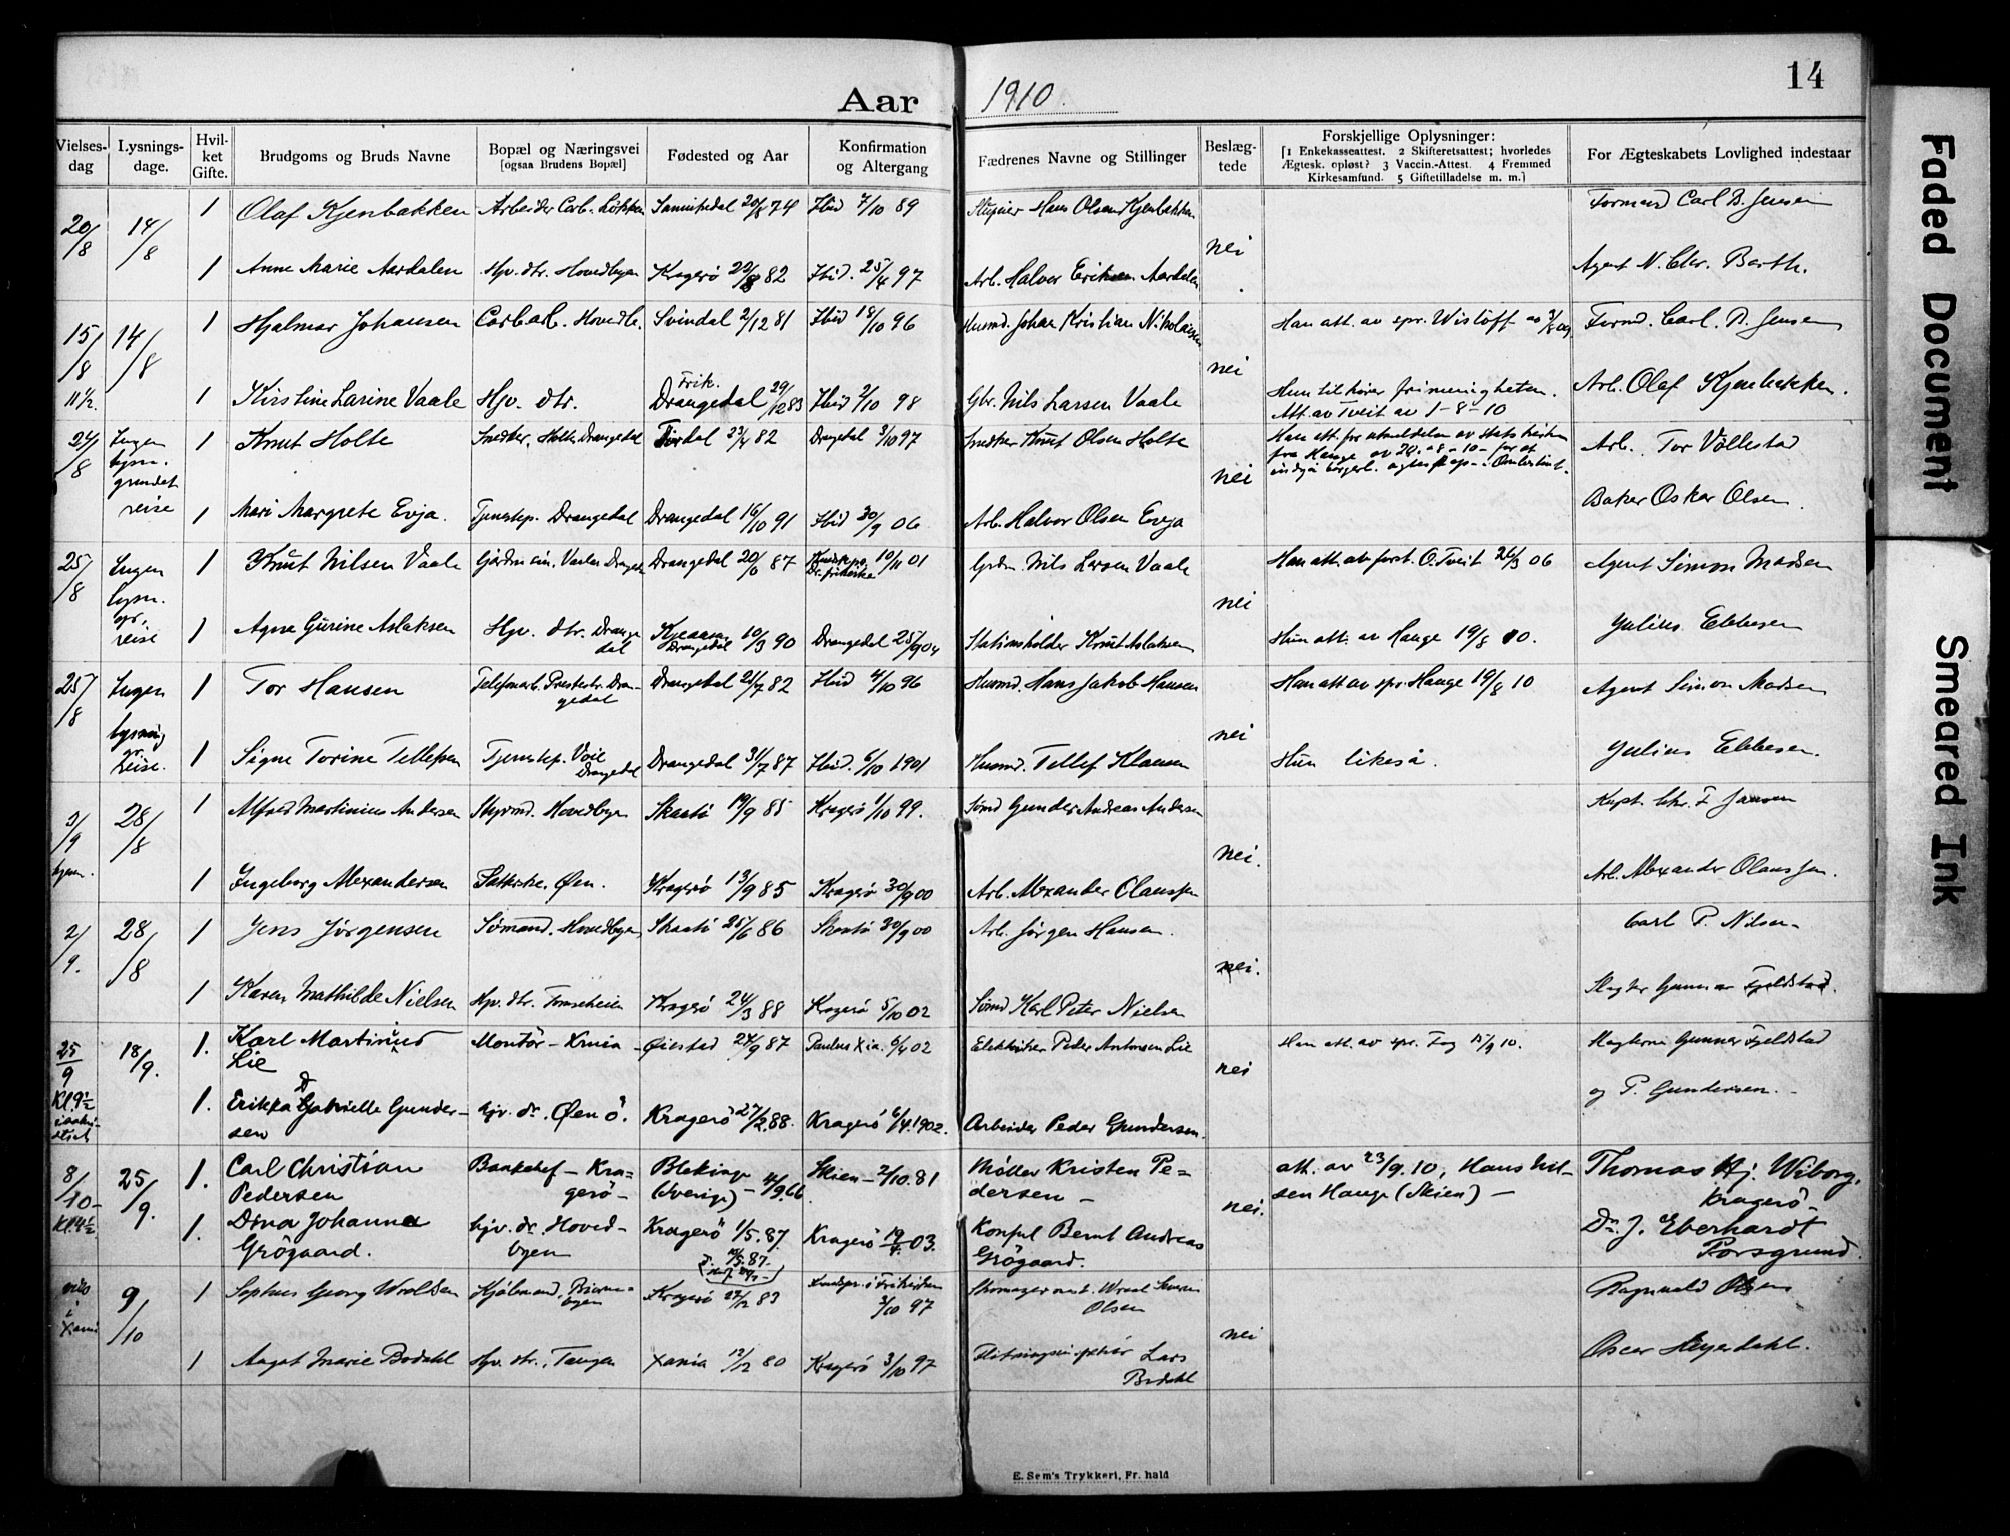 Aar 1910. 14
Vielses-dag Lysnings-dage. Hvil-ket Gifte. Brudgoms og Bruds Navne Bopæl og Næringsvei [ogsaa Brudens Bopæl] Fødested og Aar Konfirmation og Altergang Fædrenes Navne og Stillinger Beslæg-tede Forskjellige Oplysninger: [1 Enkekasseattest. 2 Skifteretsattest; hvorledes Ægtesk. opløst? 3 Vaccin.-Attest. 4 Fremmed Kirkesamfund. 5 Giftetilladelse m. m.] For Ægteskabets Lovlighed indestaar
20/8 14/8 1 Olaf Kjenbakken Arbeider Carb. Løkken 20/8 74 Ibid 7/10 89 Hans Olsen Kjenbakken nei Formand Carl B. Jensen
1 Anne Marie Aardalen Hjv. dtr. Hovedbyen Kragerø 82 Ibid. 25/4 97 Arb. Halvor Eriksen Aardalen Agent N. Chr. Barth.
15/8 11 1/2. 14/8 1 Hjalmar Johansen Carbarb. Hovedb. Svindal 2/12 81 Ibid 18/10 96 Husmd. Johan Kristian Nikolaisen nei Han att. av spr. Wisløff Formd. Carl. B. Jensen
1 Kirstine Larine Vaale Hjv. dtr. Frik. Drangedal 29/12 83 Ibid 2/10 98 Gbr. Nils Larsen Vaale Hun tilhører frimenigheten. Att. av Tveit av 1-8-10 Arb. Olaf Kjenbakken.
24/8 Ingen lysn. grundet reise 1 Knut Holte Snedker, Holte Drangedal Tørdal 23/4 82 Drangedal 3/10 97 Snedker Knut Olsen Holte nei Han att. for utmeldelse av statskirken fra Hauge av 20-8-10 for at indgå borgerl. Arb. Tor Vøllestad
1 Mari Margrete Evja. Tjenestep. Drangedal Drangedal 16/10 91 Ibid 30/9 06 Arb. Halvor Olsen Evja Baker Oskar Olsen.
25/8 Ingen lysn. gr. reise 1 Knut Nilsen Vaale Drangedal 20/6 87 10/11 01 Nils Larsen Vaale nei Han att. av forst. O. Tveit 26/3 06 Agent Simon Madsen
1 Agne Gurine Aslaksen Hjv. dtr. Drangedal Drangedal 10/3 90 Drangedal 25/9 04 Stationsholder Knut Aslaksen Hun att. av Hauge 19/8 10. Julius Ebbesen
25/8 Ingen lysning gr. reise. 1 Tor Hansen Telefonarb. Prestestr. Drangedal Drangedal 21/7 82 Ibid 4/10 96 Husmd. Hans Jakob Hansen nei Han att av spr. Hauge 19/8 10 Agent Simon Madsen
1 Signe Torine Tellefsen Tjenestep. Voie Drangedal Drangedal 31/7 87 Ibid. 6/10 1901 Husmd. Tellef Klausen Hun likeså. Julius Ebbesen.
3/9 28/8 1 Alfred Martinius Andersen Styrmd. Hovedbyen Skaatø 19/9 85 Kragerø 1/10 99. Sømd Gunder Andreas Andersen nei. Kapt. Chr. F Jansen
1 Ingeborg Alexandersen Øen. Kragerø 13/9 85 Kragerø 30/9 00 Arb. Alexander Olaussen Arb. Alexander Olaussen.
2/9. 28/8 1 Jens Jørgensen Sømand. Hovedbyen Skaatø 25/6 86 Skaatø 30/9 00 Arb. Jørgen Hansen. nei. Carl P. Nilsen
1 Karen Mathilde Nielsen Hjv. dtr. Kragerø 24/3 88 Kragerø 5/10 02 Sømd Karl Peter Nielsen Slagter Gunnar Fjeldstad.
25/9 Kl. 9 1/2 18/9. 1. Karl Martinius Lie Montör - Xania - Øiestad 24/9 87 Paulus Xia. 6/4 02 Elektriker Peder Antonsen Lie nei Han att. av spr. 15/9 10. Slagterne Gunnar Fjeldstad
1. Erikka Gabrielle Gundersen hjv. dr. Øen ö. Kragerö 27/2 88. Kragerö 6/4. 1902. Arbeider Peder Gundersen. og P. Gundersen.
8/10 Kl. 4 1/2 25/9. 1. Carl Christian Pedersen Bankchef - Kragerö - Blekinge (Sverige) - 4/9. 66 Skien - 2/10. 81 Möller Kristen Pedersen - nei. att. av 23/9. 10, Hans Nilsen Hauge (Skien) - Thomas Hj. Wiborg, Kragerö -
1. Dina Johanne Grögaard. hjv. dr. Hovedbyen Kragerö 1/5. 87. Kragerö 03. Konsul Bernt Andreas Grögaard. Dr. J. Eberhardt Porsgrund.
i Xania 9/10 1 Sophus Georg Wroldsen Kragerø 27/12 83 3/10 97 Olsen nei Ragnvald Olsen
1 Aagot Marie Bødahl Hjv. dtr., Tangen Xania 12/12 80 Kragerø 3/10 97 Lars Bødahl Oscar Heyerdahl.
E. Sem's Trykkeri, Fr. hald
Faded Document
Smeared Ink